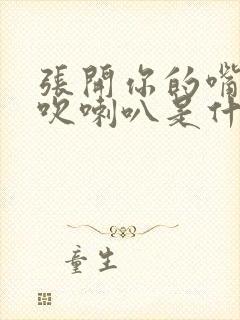 張開你的嘴
吹喇叭是什
童生